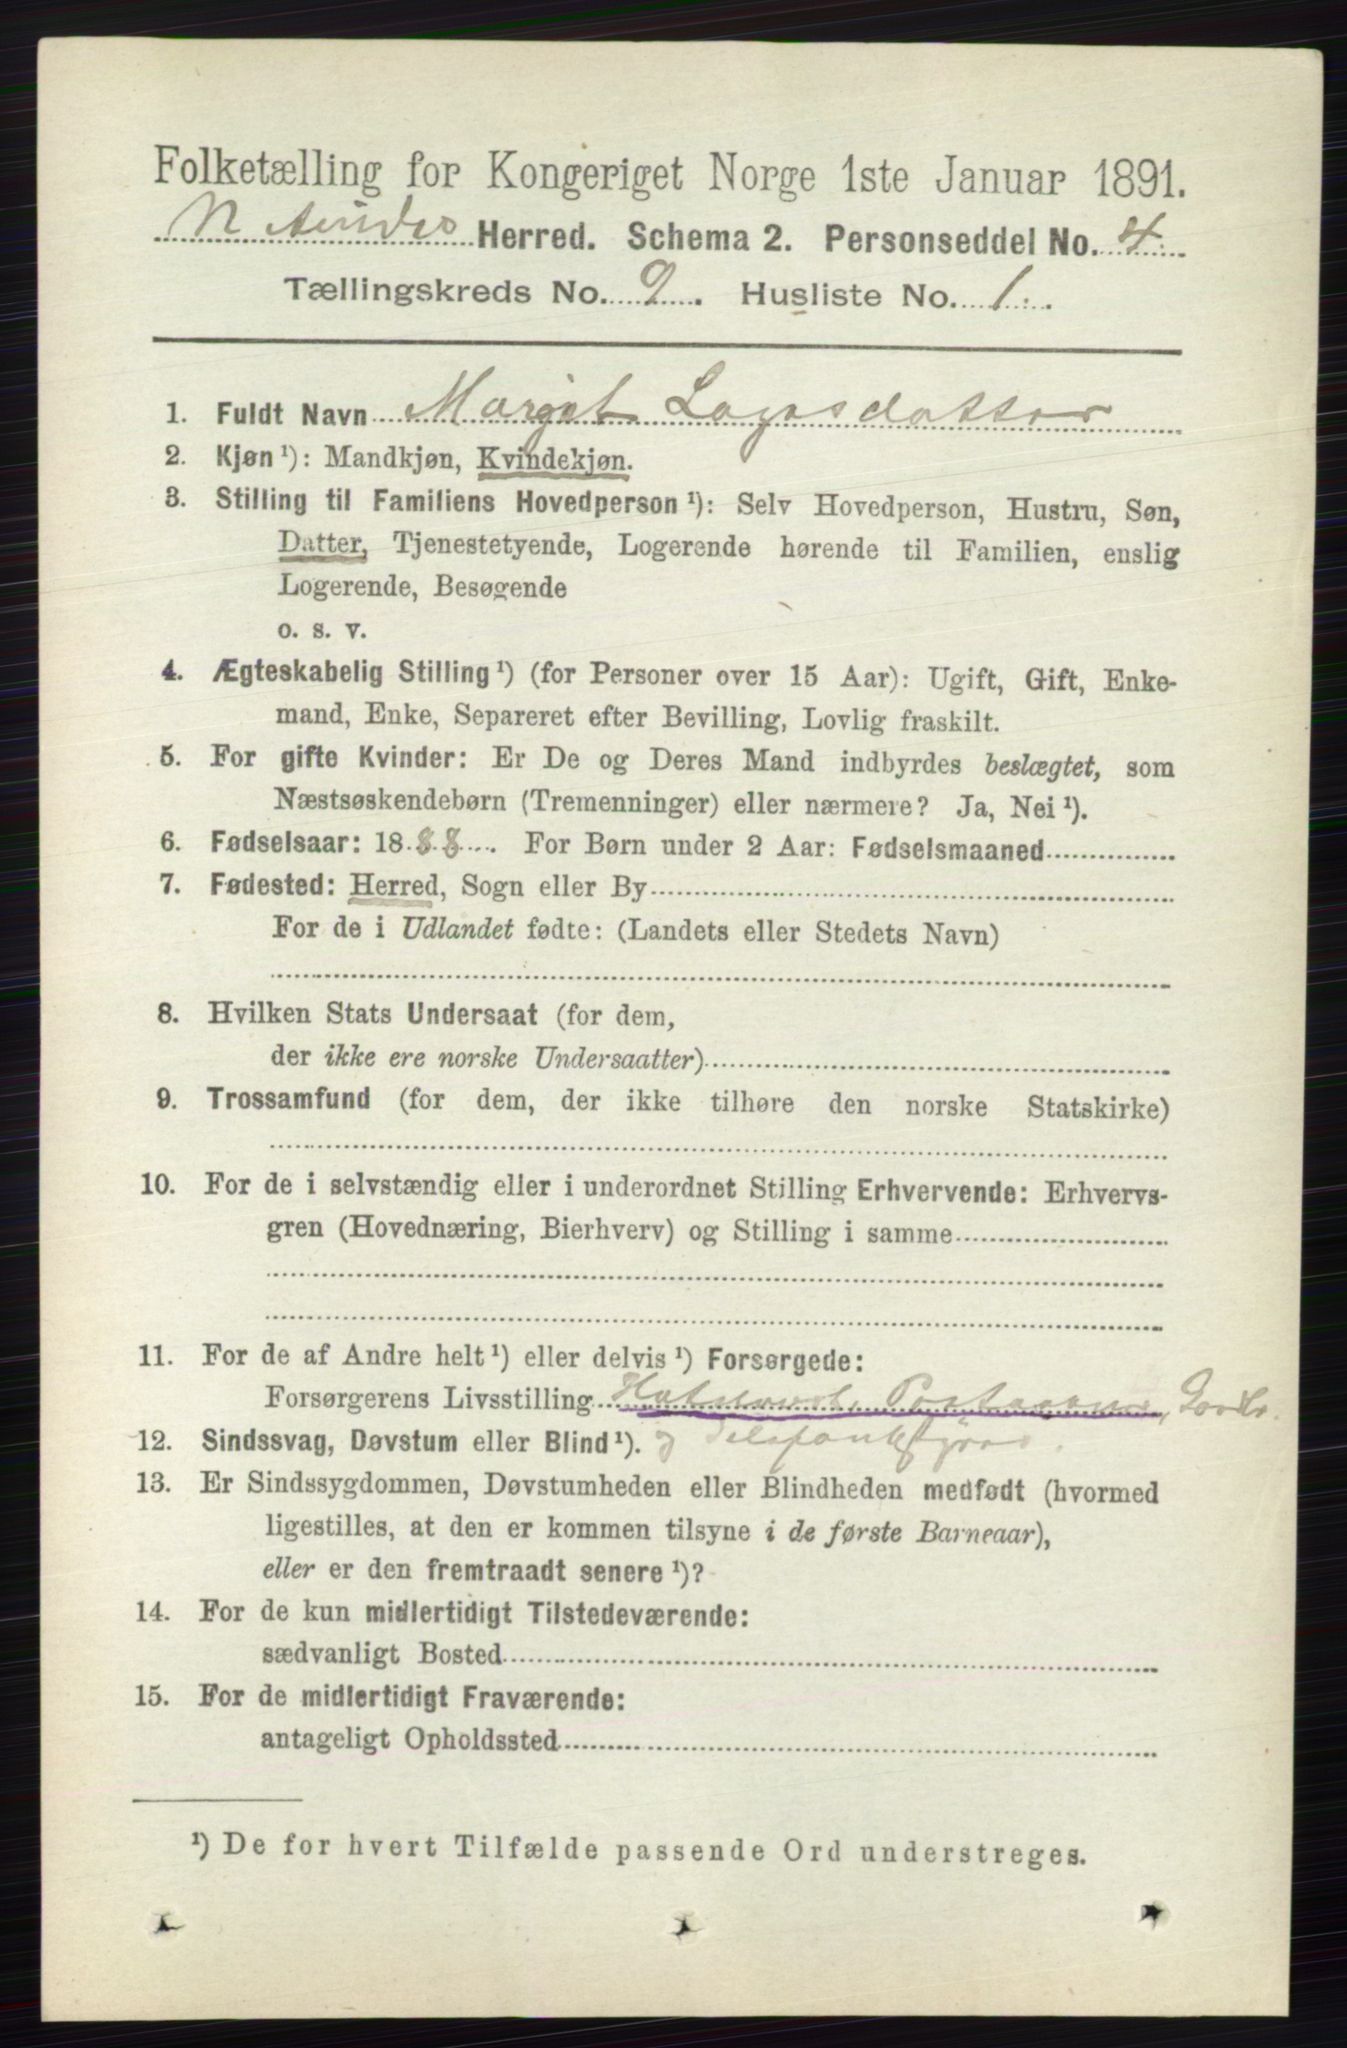 Folketælling for Kongeriget Norge 1ste Januar 1891.
N Herred. Schema 2. Personseddel No. 4
Tællingskreds No. 9. Husliste No. 1.
1. Fuldt Navn Margit
2. Kjøn ¹): Mandkjøn, Kvindekjøn.
3. Stilling til Familiens Hovedperson ¹): Selv Hovedperson, Hustru, Søn,
Datter, Tjenestetyende, Logerende hørende til Familien, enslig
Logerende, Besøgende
o. s. v.
4. Ægteskabelig Stilling ¹) (for Personer over 15 Aar): Ugift, Gift, Enke-
mand, Enke, Separeret efter Bevilling, Lovlig fraskilt.
5. For gifte Kvinder: Er De og Deres Mand indbyrdes beslægtet, som
Næstsøskendebørn (Tremenninger) eller nærmere? Ja, Nei ¹).
6. Fødselsaar: 1888. For Børn under 2 Aar: Fødselsmaaned
7. Fødested: Herred, Sogn eller By
For de i Udlandet fødte: (Landets eller Stedets Navn)
8. Hvilken Stats Undersaat (for dem,
der ikke ere norske Undersaatter)
9. Trossamfund (for dem, der ikke tilhøre den norske Statskirke)
10. For de i selvstændig eller i underordnet Stilling Erhvervende: Erhvervs-
gren (Hovednæring, Bierhverv) og Stilling i samme
11. For de af Andre helt ¹) eller delvis ¹) Forsørgede:
Forsørgerens Livsstilling
12. Sindssvag, Døvstum eller Blind ¹). og Telefonbestyrer.
13. Er Sindssygdommen, Døvstumheden eller Blindheden medfødt (hvormed
ligestilles, at den er kommen tilsyne i de første Barneaar),
eller er den fremtraadt senere ¹)?
14. For de kun midlertidigt Tilstedeværende:
sædvanligt Bosted
15. For de midlertidigt Fraværende:
antageligt Opholdssted
¹) De for hvert Tilfælde passende Ord understreges.